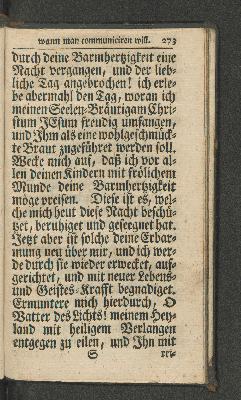 wann man communiciren will. 273
durch deine Barmhertzigkeit eine
Nacht vergangen, und der lieb-
liche Tag angebrochen! ich erle-
be abermahl den Tag, woran ich
meinen Seelen-Bräutigam Chri-
stum JEsum freudig umfangen,
und Jhm als eine wohlgeschmück-
te Braut zugeführet werden soll.
Wecke mich auf, daß ich vor al-
len deinen Kindern mit frölichem
Munde deine Barmhertzigkeit
möge preisen. Diese ist es, wel-
che mich heut diese Nacht beschü-
tzet, beruhiget und gesegnet hat.
Jetzt aber ist solche deine Erbar-
mung neu über mir, und ich wer-
de durch sie wieder erwecket, auf-
gerichtet, und mit neuer Lebens-
und Geistes-Krafft begnadiget.
Ermuntere mich hierdurch, O
Vatter des Lichts! meinem Hey-
land mit heiligem Verlangen
entgegen zu eilen, und Jhn mit
S